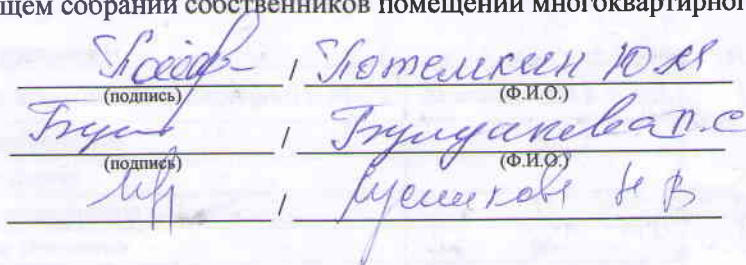 щем собрании собственников помещений многоквартирног
/ Потемкин Ю М
(подпись) (Ф.И.О.)
/ Булдакова П.С
(подпись) (Ф.И.О.)
/ Н В